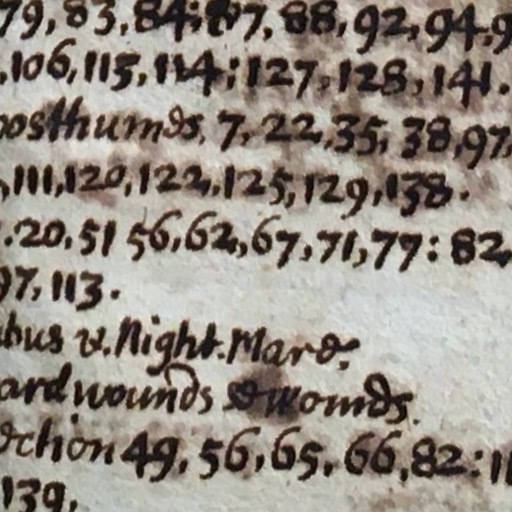 79, 83, 84; 87, 88, 92, 94, 9
, 106, 115, 114; 127, 128, 141.
posthumds, 7, 22, 35, 38, 97,
, 111, 120, 122, 125, 129, 138.
. 20, 51 56, 62, 67, 71, 79: 82,
97, 113.
bus v. Night. Mare.
ard wounds womds.
ection 49, 56, 65, 66, 82: 11
139,